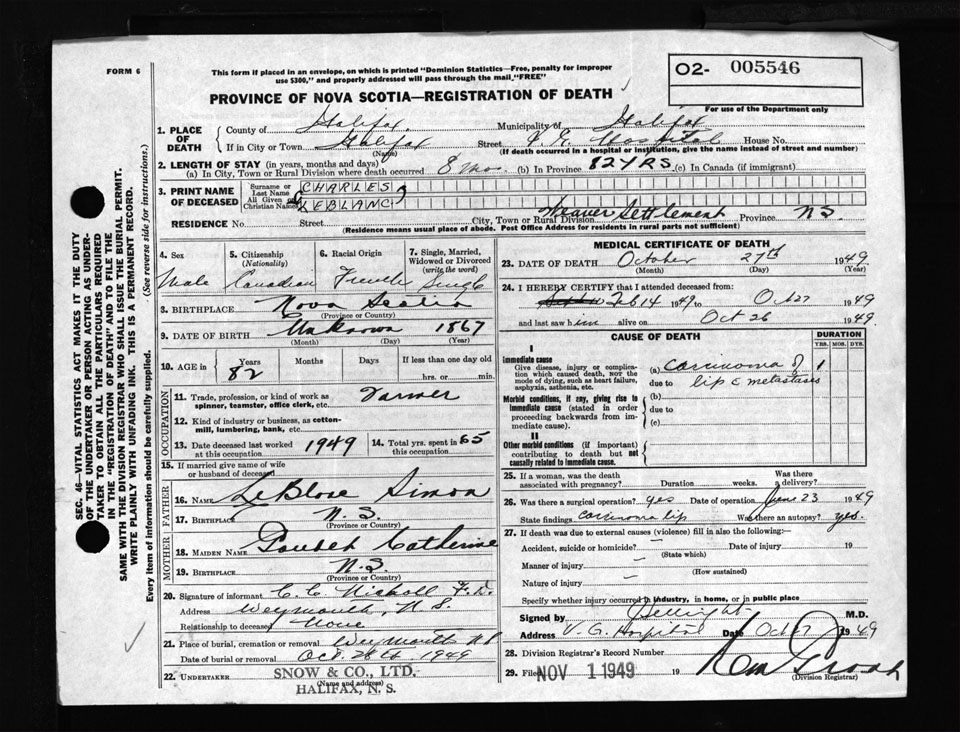 FORM 6
This form if placed in an envelope, on which is printed "Dominion Statistics—Free, penalty for improper
use $300," and properly addressed will pass through the mail "FREE"
PROVINCE OF NOVA SCOTIA—REGISTRATION OF DEATH
O2- 005546
For use of the Department only
1. PLACE OF DEATH
County of Halifax Municipality of Halifax
If in City or Town Halifax Street V.G. Hospital House No.
(Name) (If death occurred in a hospital or institution, give the name instead of street and number)
2. LENGTH OF STAY (in years, months and days)
(a) In City, Town or Rural Division where death occurred 8 mos. (b) In Province 82 YRS. (c) In Canada (if immigrant)
3. PRINT NAME OF DECEASED
Surname or Last Name CHARLES
All Given or Christian Names LEBLANC
RESIDENCE No. Street City, Town or Rural Division Weaver Settlement Province NS
(Residence means usual place of abode. Post Office Address for residents in rural parts not sufficient)
4. Sex Male
5. Citizenship (Nationality) Canadian
6. Racial Origin French
7. Single, Married, Widowed or Divorced (write the word) Single
8. BIRTHPLACE Nova Scotia
(Province or Country)
9. DATE OF BIRTH Unknown 1867
(Month) (Day) (Year)
10. AGE in Years 82 Months Days If less than one day
hrs. or min.
OCCUPATION
11. Trade, profession, or kind of work as spinner, teamster, office clerk, etc. Farmer
12. Kind of industry or business, as cotton-mill, lumbering, bank, etc.
13. Date deceased last worked at this occupation 1949 14. Total yrs. spent in 65
this occupation
15. If married give name of wife or husband of deceased
FATHER
16. NAME Simon
17. BIRTHPLACE N.S.
(Province or Country)
MOTHER
18. MAIDEN NAME Catherine
19. BIRTHPLACE N.S.
(Province or Country)
20. Signature of informant C. C. Nickoll F.D.
Address Weymouth, N.S.
Relationship to deceased None
21. Place of burial, cremation or removal Weymouth N.S
Date of burial or removal Oct. 28th 1949
22. UNDERTAKER SNOW & CO., LTD.
(Name and Address)
HALIFAX, N. S.
MEDICAL CERTIFICATE OF DEATH
23. DATE OF DEATH October 27th 1949
(Month) (Day) (Year)
24. I HEREBY CERTIFY that I attended deceased from:
Feb 14 1949 to Oct 27 1949
and last saw him alive on Oct 26 1949.
CAUSE OF DEATH DURATION
YRS. MOS. DYS.
I
Immediate cause
Give disease, injury or complication which caused death, NOT the mode of dying, such as heart failure, asphyxia, asthenia, etc.
(a) carcinoma of 1
due to lip c metastases
Morbid conditions, if any, giving rise to immediate cause (stated in order proceeding backwards from immediate cause).
(b)
due to
(c)
II
Other morbid conditions (if important) contributing to death but not causally related to immediate cause.
25. If a woman, was the death associated with pregnancy? Duration weeks. Was there a delivery?
26. Was there a surgical operation? yes Date of operation June 23 1949
State findings carcinoma lip Was there an autopsy? yes.
27. If death was due to external causes (violence) fill in also the following:—
Accident, suicide or homicide? — Date of injury 19
(State which)
Manner of injury —
(How sustained)
Nature of injury —
Specify whether injury occurred in industry, in home, or in public place
Signed by M.D.
Address V. G. Hospital Date Oct 27 1949
28. Division Registrar's Record Number
29. Filed NOV 1 1949 19
(Division Registrar)
SEC. 46—VITAL STATISTICS ACT MAKES IT THE DUTY
OF THE UNDERTAKER OR PERSON ACTING AS UNDER-
TAKER TO OBTAIN ALL THE PARTICULARS REQUIRED
IN THE "REGISTRATION OF DEATH" AND TO FILE THE
SAME WITH THE DIVISION REGISTRAR WHO SHALL ISSUE THE BURIAL PERMIT.
WRITE PLAINLY WITH UNFADING INK. THIS IS A PERMANENT RECORD.
Every item of information should be carefully supplied. (See reverse side for instructions.)